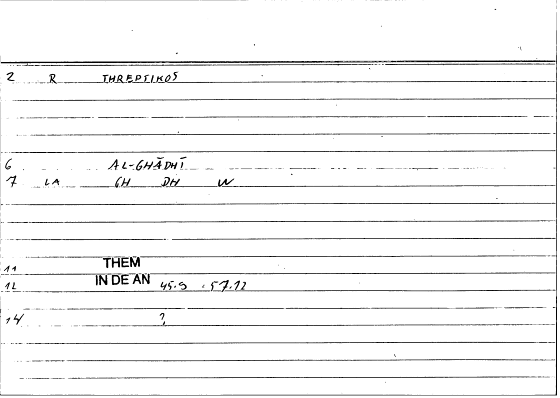 2 R THREPTIKOS
6 AL-GHĀDHĪ
7 LA GH DH W
11 THEM
12 IN DE AN 45.9 - 57.12
14 ?